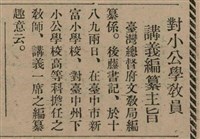 對小公學教員
講義編纂主旨
臺灣總督府文敎局編
纂係。後藤書記。於十
八九兩日。在臺中市新
富小學校。對臺中州下
小公學校高等科擔任之
敎師。講義一席之編纂
趣意云。